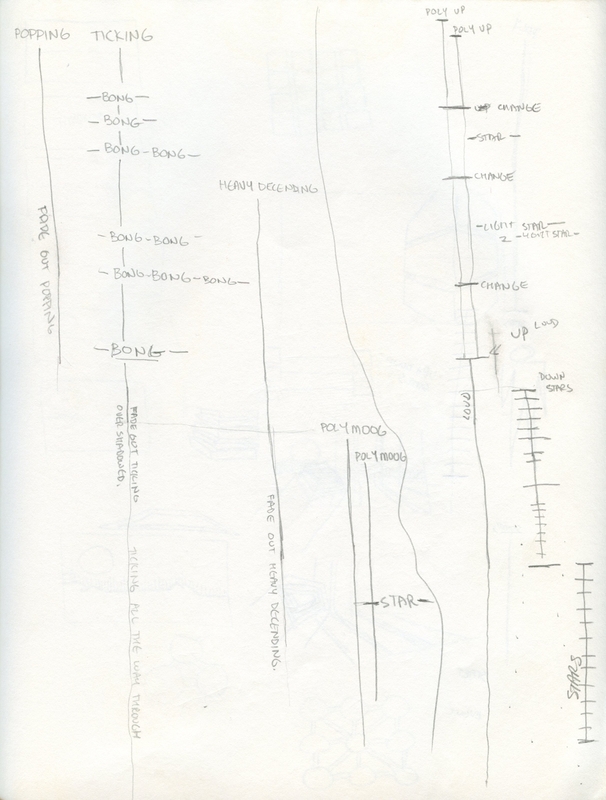 POPPING
TICKING
-BONG-
-BONG-
-BONG-BONG-
-BONG-BONG-
-BONG-BONG-BONG-
-BONG-
FADE OUT POPPING
FADE OUT TICKING
OVER SHADOWED.
TICKING ALL THE WAY THROUGH
HEAVY DECENDING
FADE OUT HEAVY DECENDING.
POLYMOOG
POLYMOOG
STAR
POLY UP
POLY UP
UP CHANGE
-STAR-
CHANGE
-LIGHT STAR-
2 -LIGHT STAR-
CHANGE
UP LOUD
LOUD
DOWN
STARS
STARS